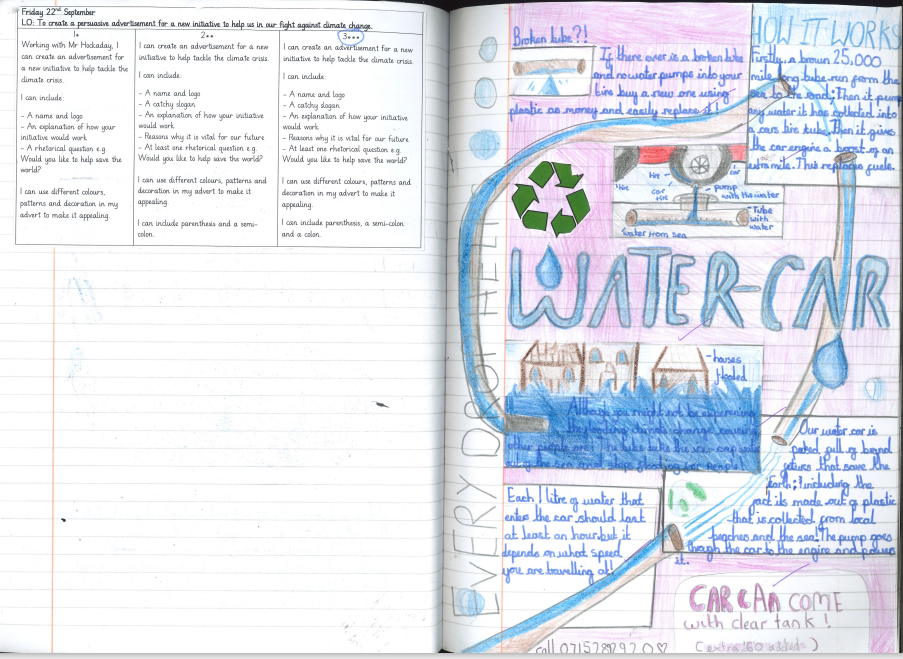 Friday 22nd September
LO: To create a persuasive advertisement for a new initiative to help us in our fight against climate change.
1*
Working with Mr Hockaday, I
can create an advertisement for a
new initiative to help tackle the
climate crisis.
I can include:
- A name and logo
- An explanation of how your
initiative would work
- A rhetorical question e.g.
Would you like to help save the
world?
I can use different colours,
patterns and decoration in my
advert to make it appealing.
2**
I can create an advertisement for a new
initiative to help tackle the climate crisis.
I can include:
- A name and logo
- A catchy slogan
- An explanation of how your initiative
would work
- Reasons why it is vital for our future
- At least one rhetorical question e.g.
Would you like to help save the world?
I can use different colours, patterns and
decoration in my advert to make it
appealing.
I can include parenthesis and a semi-
colon.
3***
I can create an advertisement for a new
initiative to help tackle the climate crisis.
I can include:
- A name and logo
- A catchy slogan
- An explanation of how your initiative
would work
- Reasons why it is vital for our future
- At least one rhetorical question e.g.
Would you like to help save the world?
I can use different colours, patterns and
decoration in my advert to make it
appealing.
I can include parenthesis, a semi-colon
and a colon.
Broken tube?!
If there ever is a broken tube
and no water pumps into your
tire buy a new one using
plastic as money and easily replace it!
HOW IT WORKS
Firstly, a brown 25,000
mile long tube run from the
sea to the road: Then it pump
any water it has collected into
a cars tire tube, then it gives
the car engine a boost of an
extra mile. This replaces fuels.
tire
car
tire
pump
with the water
Tube
with
water
water from sea
WATER-CAR
EVERY DROP HELPS
-houses
flooded
Although you might not be experiencing
the flooding climate change causing
other people are! The tube take the
out of the sea and stops flooding for people!
Our water car is
packed full of
that save the
Earth; including the
fact its made out of plastic
that is collected from local
beaches and the sea! The pump goes
through the car to the engine and powers
it.
Each 1 litre of water that
enters the car should last
at least an hour, but it
depends on what speed
you are travelling at!
CAR CAN COME
with clear tank!
call